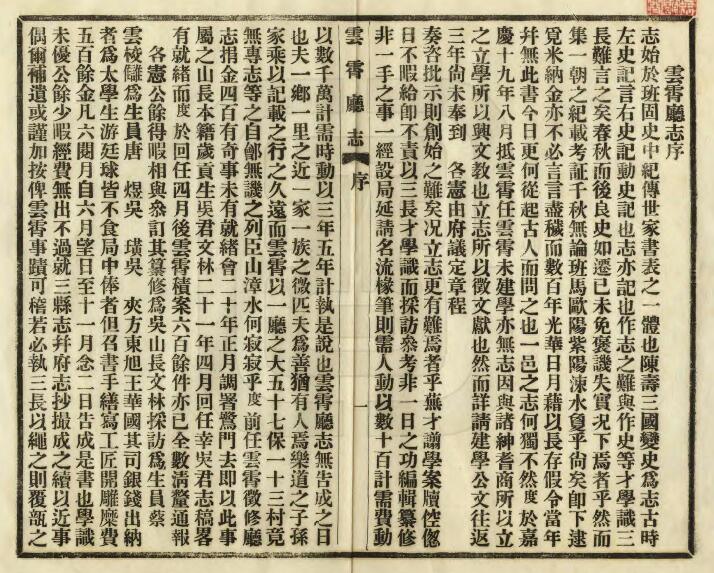 雲霄廳志序
志始於班固史中紀傳世家書表之一體也陳壽三國變史爲志古時
左史記言右史記動史記也志亦記也作志之難與作史等才學識三
長難言之矣春秋而後良史如遷已未免褒譏失實況下焉者乎然而
集一朝之紀載考証千秋無論班馬歐陽紫陽涑水敻乎尙矣卽下逮
覓米納金亦不必言言盡穢而數百年光華日月藉以長存假令當年
幷無此書今日更何從起古人而問之也一邑之志何獨不然度於嘉
慶十九年八月抵雲霄任雲霄未建學亦無志因與諸紳耆商所以立
之立學所以興文敎也立志所以徵文獻也然而詳請建學公文往返
三年尙未奉到 各憲由府議定章程
奏咨批示則創始之難矣況立志更有難焉者乎蕪才謭學案牘倥傯
日不暇給卽不責以三長才學識而採訪叅考非一日之功編輯纂修
非一手之事一經設局延請名流椽筆則需人動以數十百計需費動
雲霄廳志 序 一
以數千萬計需時動以三年五年計執是說也雲霄廳志無告成之日
也夫一鄉一里之近一家一族之微匹夫爲善猶有人焉樂道之子孫
家乘以記載之行之久遠而雲霄以一廳之大五十七保一十三村竟
無專志等之自鄶無譏之列臣山漳水何寂寂乎度前任雲霄徵修廳
志捐金四百有奇事未有就緒會二十年正月調署鷺門去卽以此事
屬之山長本籍歲貢生吳君文林二十一年四月回任幸吳君志稿畧
有就緒而度於回任四月後雲霄積案六百餘件亦已全數淸釐通報
各憲公餘得暇相與叅訂其纂修爲吳山長文林採訪爲生員蔡
雲梭讎爲生員唐 煜吳 璜吳 夾方東旭王華國其司銀錢出納
者爲太學生游廷球皆不食局中俸者但召書手繕寫工匠開雕糜費
五百餘金凡六閱月自六月望日至十一月念二日告成是書也學識
未優公餘少暇經費無出不過就三縣志幷府志抄撮成之續以近事
偶爾補遺或謹加按俾雲霄事蹟可稽若必執三長以繩之則覆瓿之